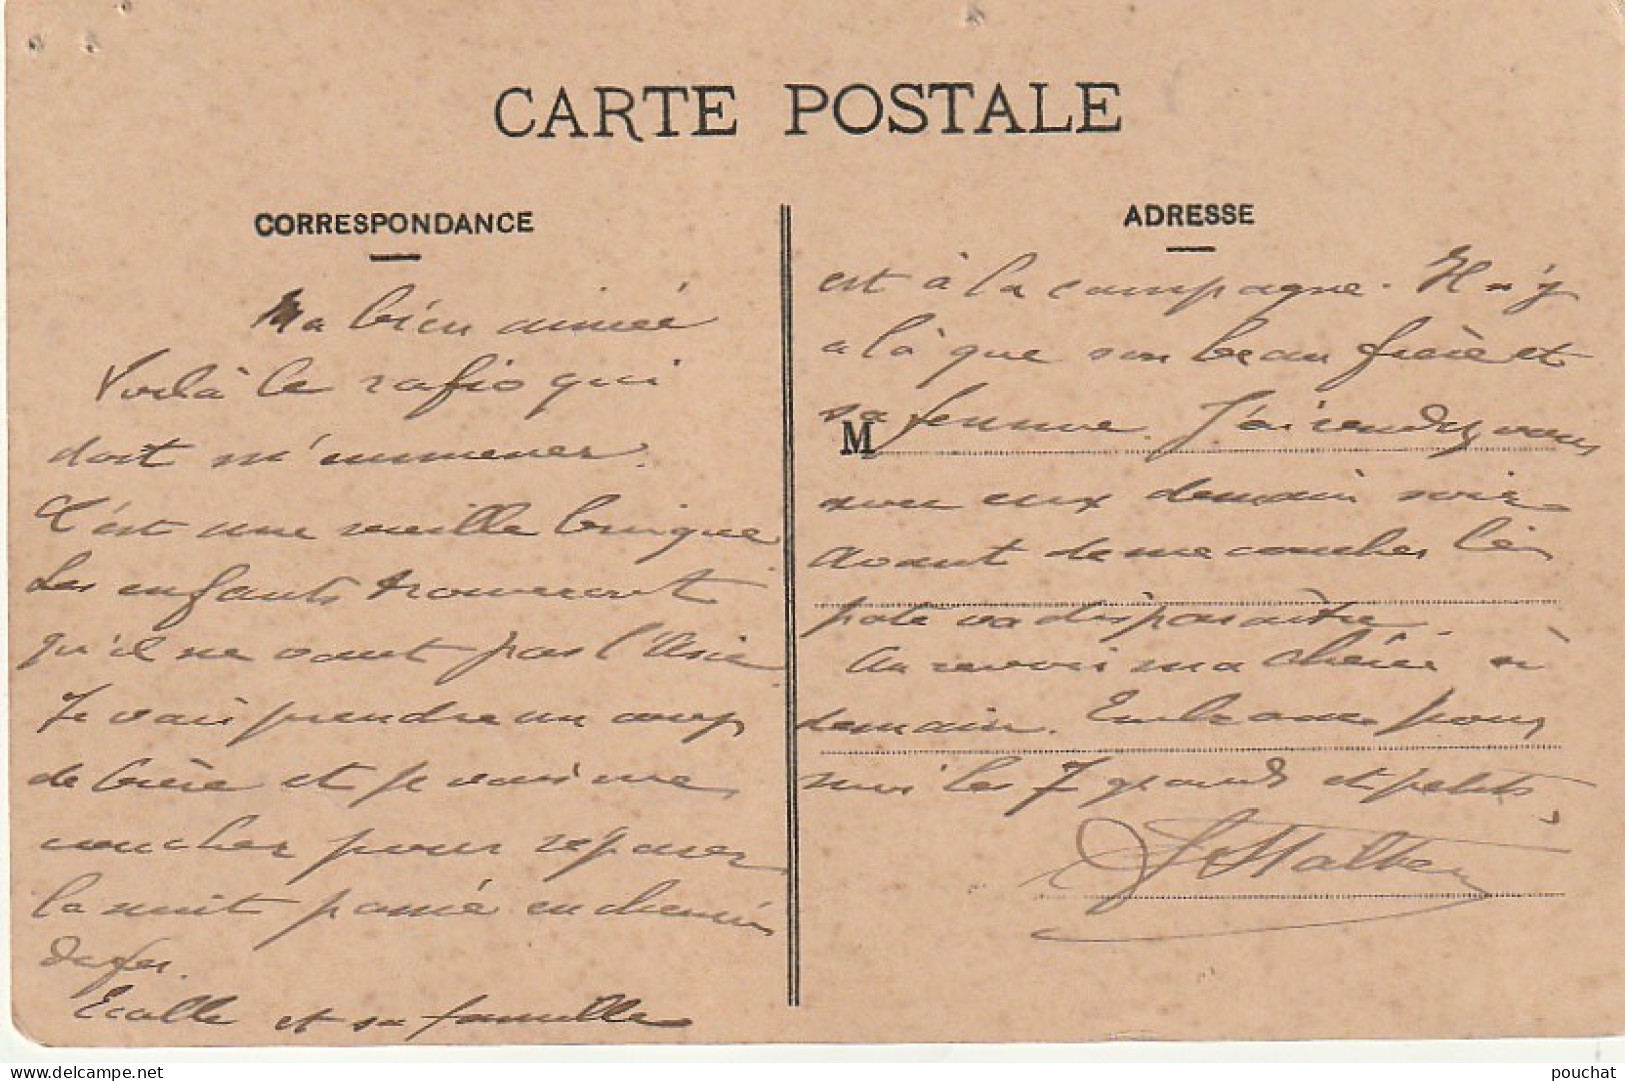 CARTE POSTALE
CORRESPONDANCE
Ma bien aimée
Voilà le rafio qui
doit m'emmener.
C'est une vieille brique
Les enfants trouveront
qu'il ne vaut pas l'Asie
Je vais prendre un coup
de bière et je vais me
coucher pour réparer
la nuit passée en chemin
de fer.
Ecolle et sa famille
ADRESSE
est à la campagne. Il n'y
a là que son beau frère et
sa femme. J'ai rendez vous
M
avec eux demain soir
avant de me coucher
va disparaître
Au revoir ma chérie à
demain. Embrasse pour
moi les 7 grands et petits
delcampe.net
pouchat